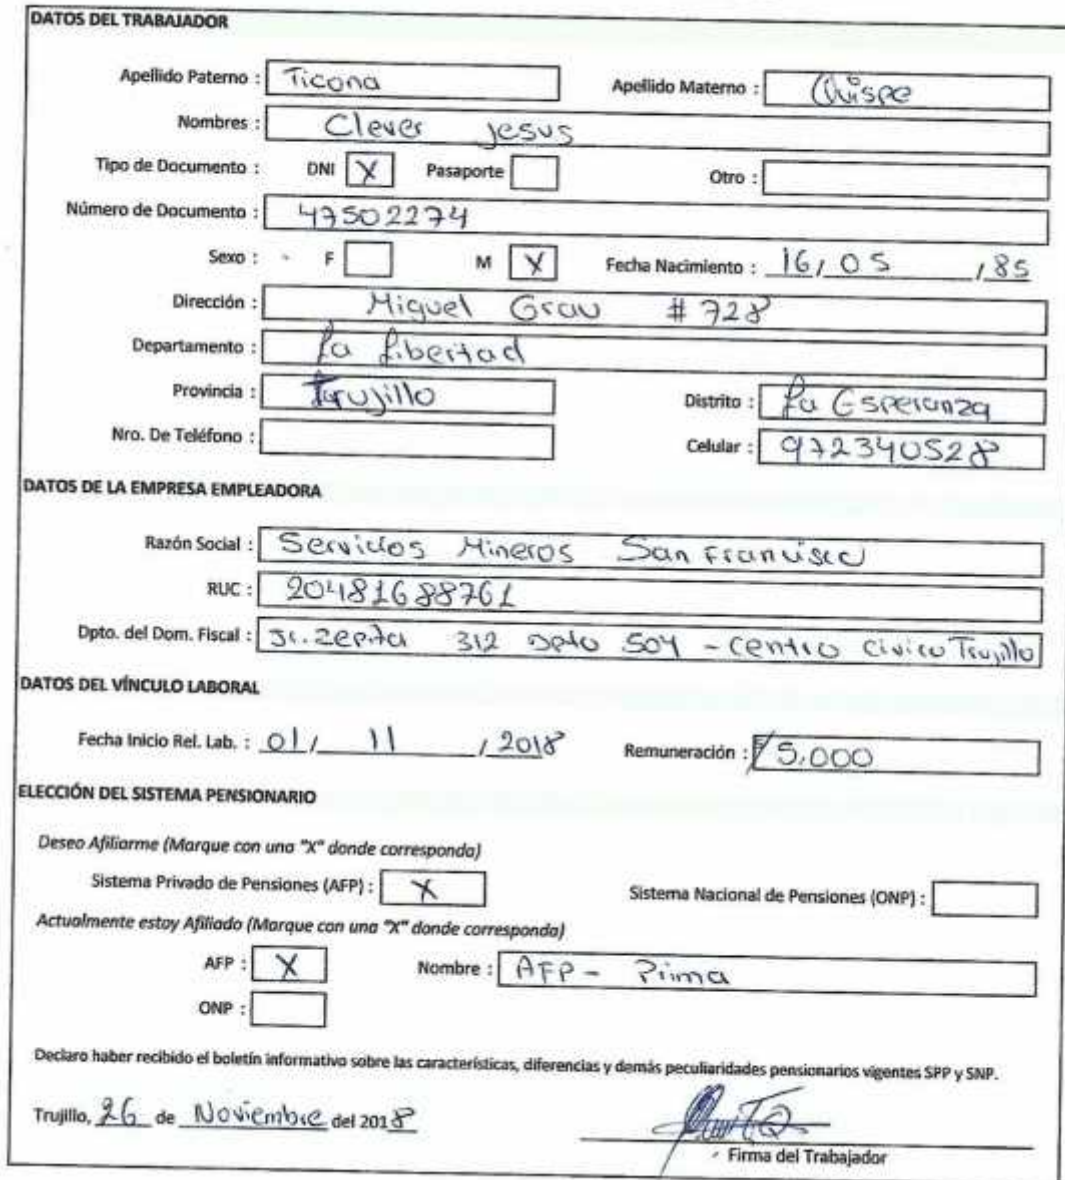 DATOS DEL TRABAJADOR
Apellido Paterno : Ticona Apellido Materno : Quispe
Nombres : Clever Jesus
Tipo de Documento : DNI X Pasaporte Otro :
Número de Documento : 47502274
Sexo : F M X Fecha Nacimiento : 16 / 05 / 85
Dirección : Miguel Grau # 728
Departamento : La Libertad
Provincia : Trujillo Distrito : La Esperanza
Nro. De Teléfono : Celular : 972340528
DATOS DE LA EMPRESA EMPLEADORA
Razón Social : Servicios Mineros San Francisco
RUC : 20481688761
Dpto. del Dom. Fiscal : Jr. Zepita 312 Dpto 504 - Centro Civico Trujillo
DATOS DEL VÍNCULO LABORAL
Fecha Inicio Rel. Lab. : 01 / 11 / 2018 Remuneración : S/ 5,000
ELECCIÓN DEL SISTEMA PENSIONARIO
Deseo Afiliarme (Marque con una "X" donde corresponda)
Sistema Privado de Pensiones (AFP) : X Sistema Nacional de Pensiones (ONP) :
Actualmente estoy Afiliado (Marque con una "X" donde corresponda)
AFP : X Nombre : AFP - Prima
ONP :
Declaro haber recibido el boletín informativo sobre las características, diferencias y demás peculiaridades pensionarios vigentes SPP y SNP.
Trujillo, 26 de Noviembre del 2018
Firma del Trabajador